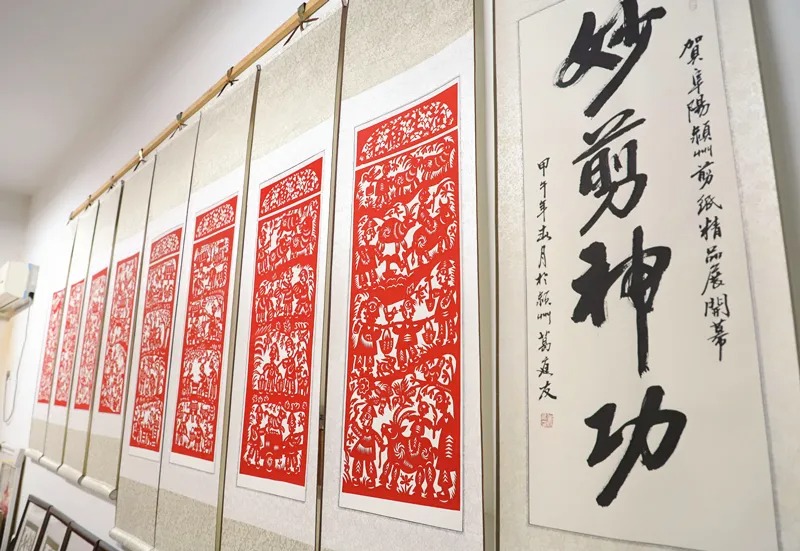 賀阜陽潁州剪紙精品展開幕
妙剪神功
甲午年 月於潁州 葛 友